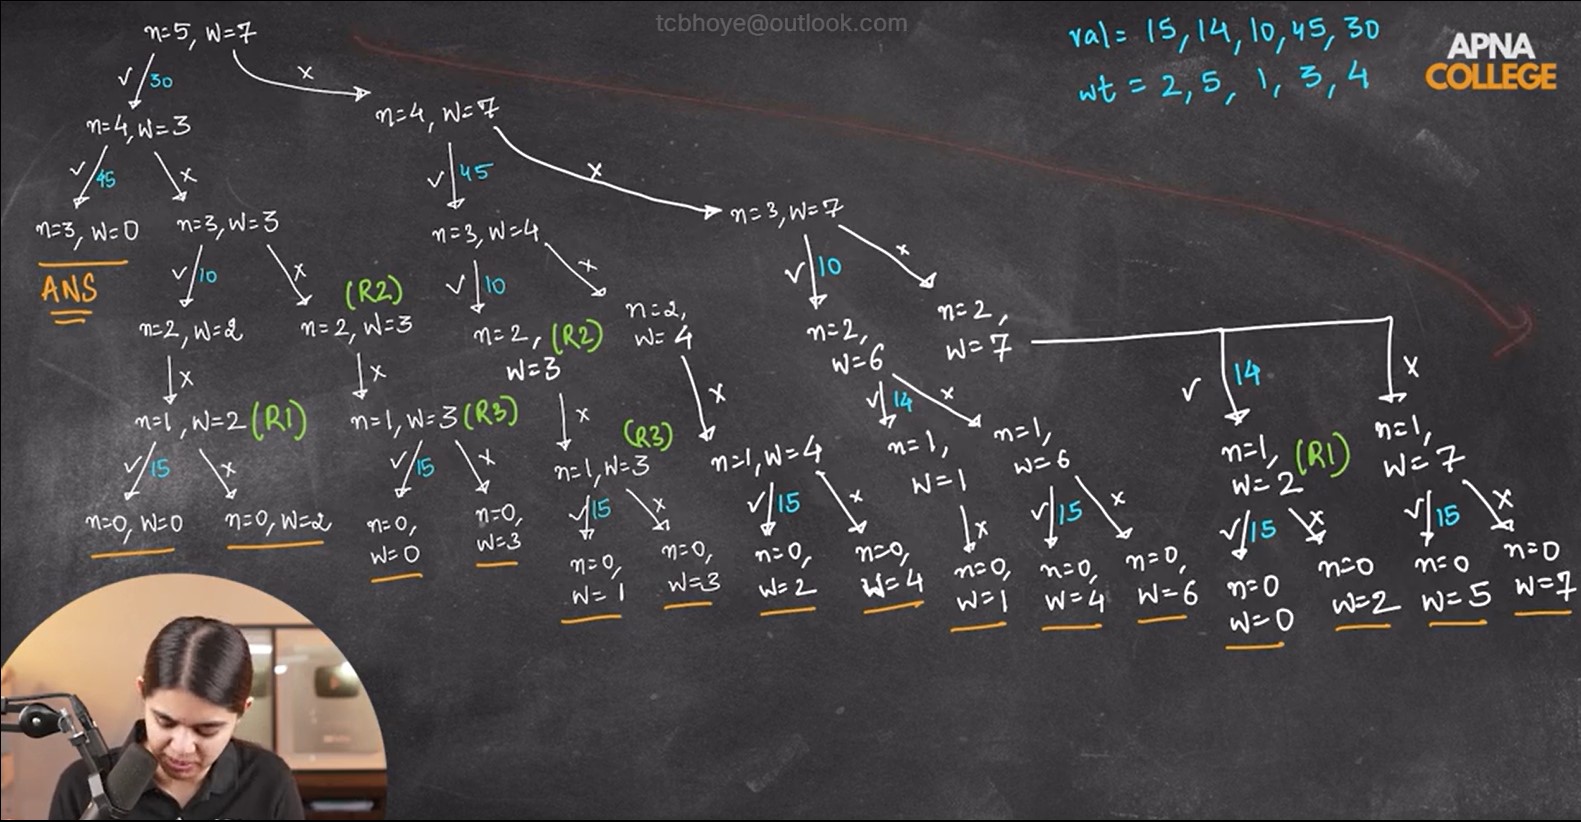 tcbhoye@outlook.com
val = 15, 14, 10, 45, 30
wt = 2, 5, 1, 3, 4
APNA
COLLEGE
n=5, W=7
✓ 30
x
n=4, W=3
n=4, W=7
✓ 45
x
✓ 45
x
n=3, W=0
n=3, W=3
n=3, W=4
n=3, W=7
ANS
✓ 10
x
✓ 10
x
✓ 10
x
(R2)
n=2, W=2
n=2, W=3
n=2, (R2)
W=3
n=2,
W=4
n=2,
W=6
n=2,
W=7
x
x
x
x
✓ 14
x
✓ 14
x
n=1, W=2 (R1)
n=1, W=3 (R3)
(R3)
n=1, W=3
n=1, W=4
n=1,
W=1
n=1,
W=6
n=1, (R1)
W=2
n=1,
W=7
✓ 15
x
✓ 15
x
✓ 15
x
✓ 15
x
x
✓ 15
x
✓ 15
x
✓ 15
x
n=0, W=0
n=0, W=2
n=0,
W=0
n=0,
W=3
n=0,
W=1
n=0,
W=3
n=0,
W=2
n=0,
W=4
n=0,
W=1
n=0,
W=4
n=0,
W=6
n=0
W=0
n=0
W=2
n=0
W=5
n=0
W=7